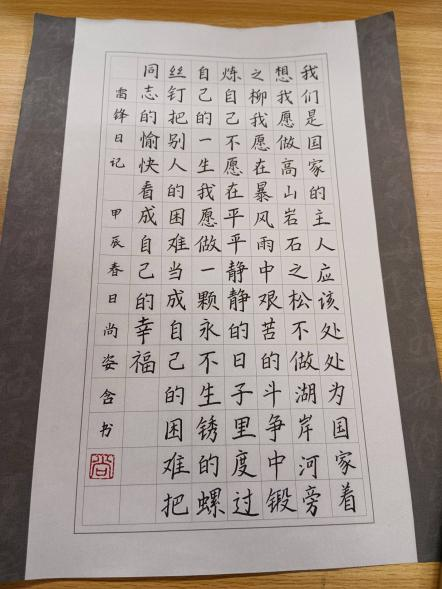 我们是国家的主人应该处处为国家着
想我愿做高山岩石之松不做湖岸河旁
之柳我愿在暴风雨中艰苦的斗争中锻
炼自己不愿在平平静静的日子里度过
自己的一生我愿做一颗永不生锈的螺
丝钉把别人的困难当成自己的困难把
同志的愉快看成自己的幸福
雷锋日记 甲辰春日尚姿含书
尚